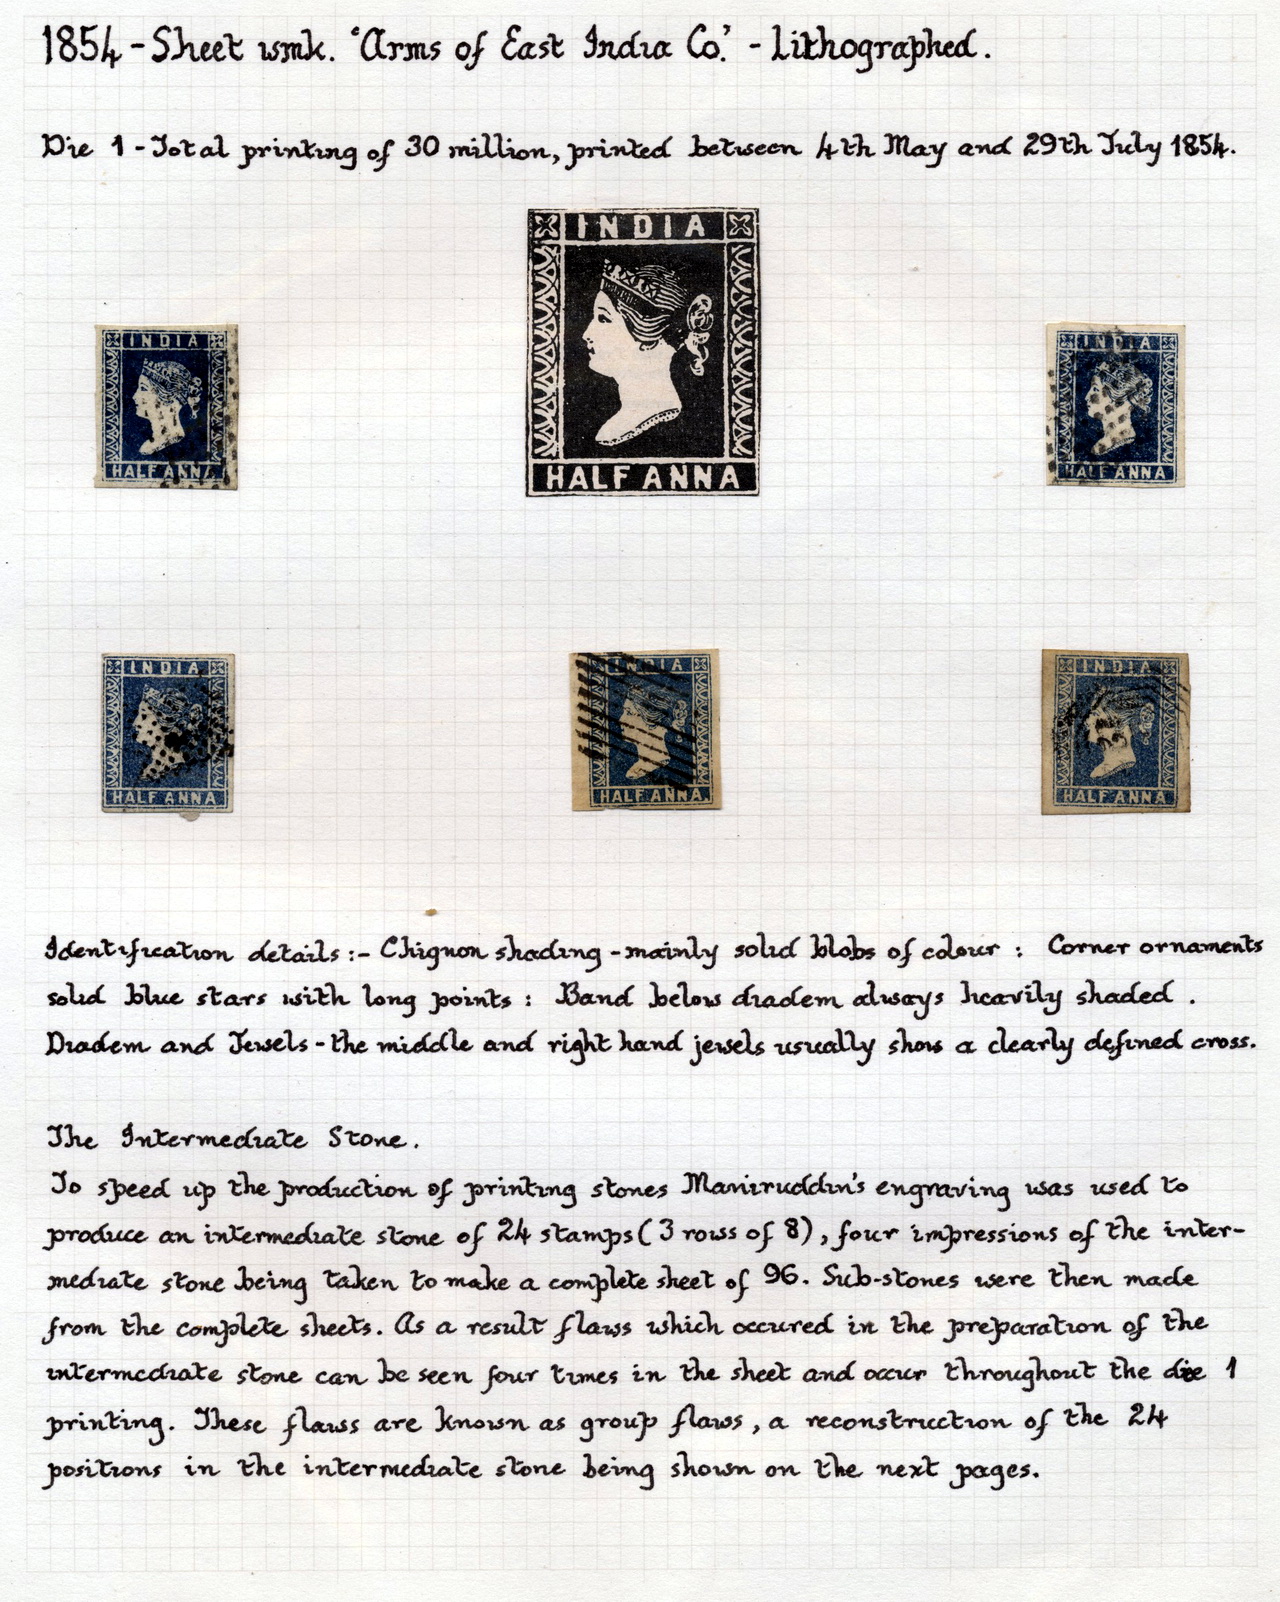 1854 - Sheet wmk. 'Arms of East India Co.' - Lithographed.
Die 1 - Total printing of 30 million, printed between 4th May and 29th July 1854.
INDIA
HALF ANNA
INDIA
HALF ANNA
INDIA
HALF ANNA
INDIA
HALF ANNA
INDIA
HALF ANNA
INDIA
HALF ANNA
Identification details :- Chignon shading - mainly solid blobs of colour : Corner ornaments
solid blue stars with long points : Band below diadem always heavily shaded .
Diadem and Jewels - the middle and right hand jewels usually show a clearly defined cross.
The Intermediate Stone.
To speed up the production of printing stones Maniruddin's engraving was used to
produce an intermediate stone of 24 stamps (3 rows of 8), four impressions of the inter-
mediate stone being taken to make a complete sheet of 96. Sub-stones were then made
from the complete sheets. As a result flaws which occured in the preparation of the
intermediate stone can be seen four times in the sheet and occur throughout the die 1
printing. These flaws are known as group flaws, a reconstruction of the 24
positions in the intermediate stone being shown on the next pages.